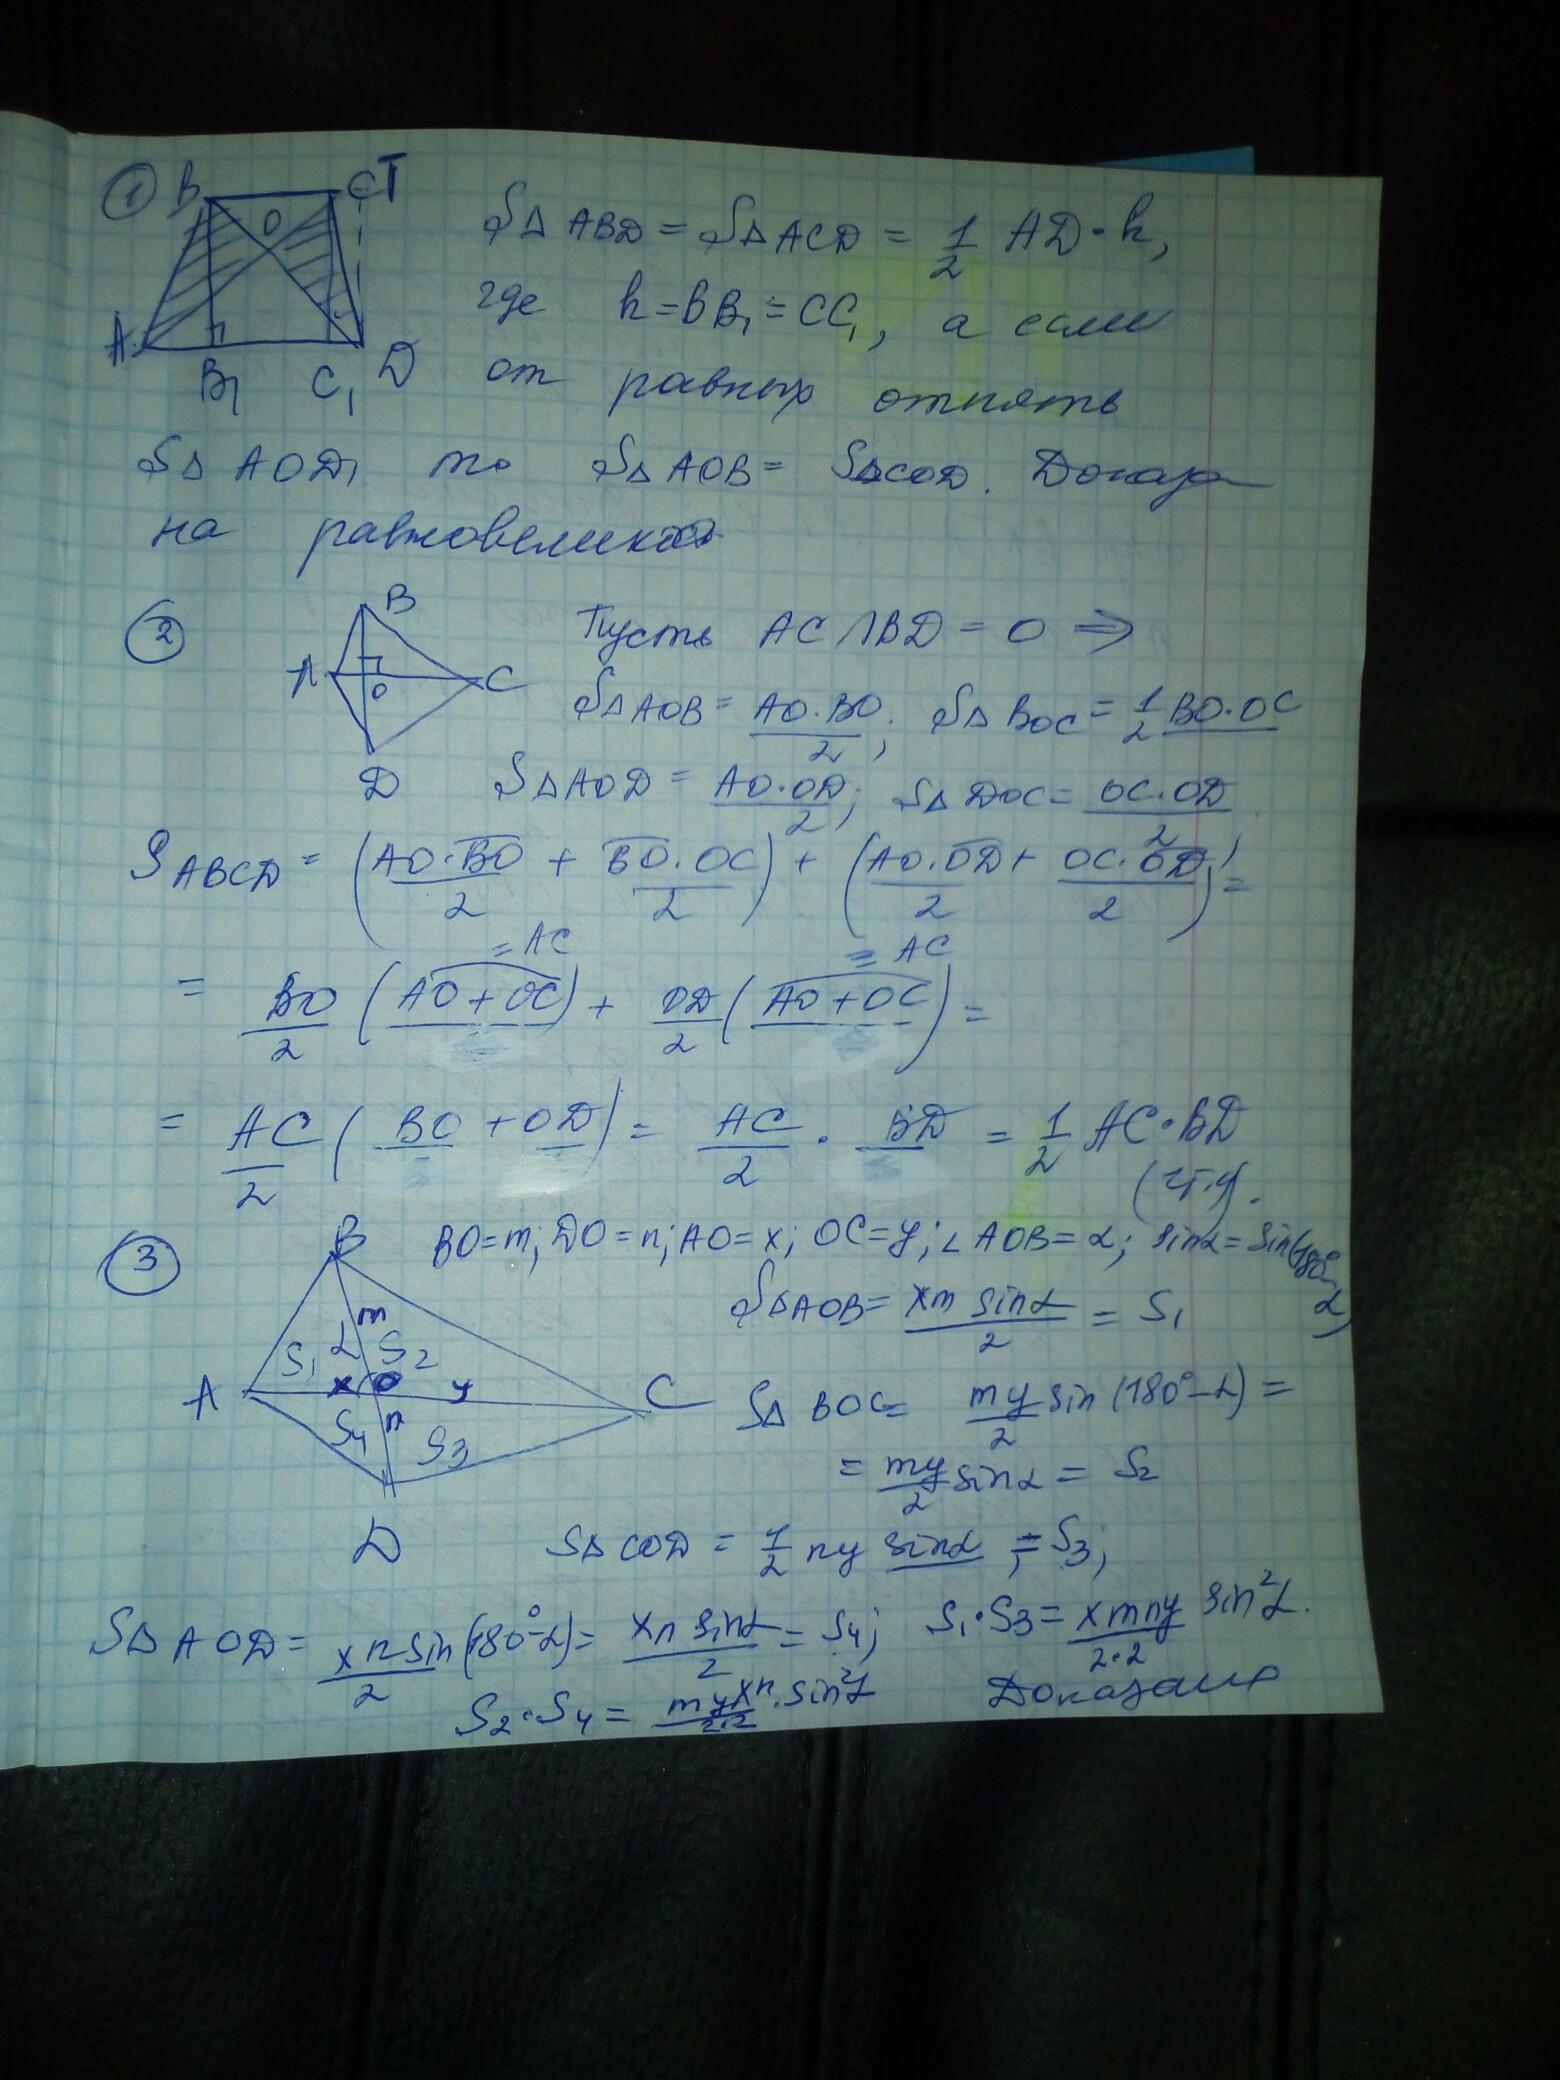 1 B O C T
A B₁ C₁ D
S△ ABD = S△ ACD = 1/2 AD · h,
где h = BB₁ = CC₁, а если
от равных отнять
S△ AOD, то S△ AOB = S△ COD. Доказа
на равновеликость
2 B A O C D
Пусть AC ∩ BD = O ⇒
S△ AOB = AO·BO/2; S△ BOC = 1/2 BO·OC
S△ AOD = AO·OD/2; S△ DOC = OC·OD/2
S ABCD = (AO·BO/2 + BO·OC/2) + (AO·OD/2 + OC·OD/2) =
= AC = AC
= BO/2 (AO + OC) + OD/2 (AO + OC) =
= AC/2 (BO + OD) = AC/2 · BD = 1/2 AC·BD
(ч.т.д).
3 B A C D O S₁ S₂ S₃ S₄ m n x y α
BO = m; DO = n; AO = x; OC = y; ∠AOB = α; sinα = sin(180° - α)
S△ AOB = xm sinα/2 = S₁
S△ BOC = my/2 sin(180° - α) =
= my/2 sinα = S₂
S△ COD = 1/2 ny sinα = S₃;
S△ AOD = xn sin(180° - α)/2 = xn sinα/2 = S₄; S₁·S₃ = xmny/2·2 sin²α.
S₂·S₄ = myxn/2·2 · sin²α Доказано